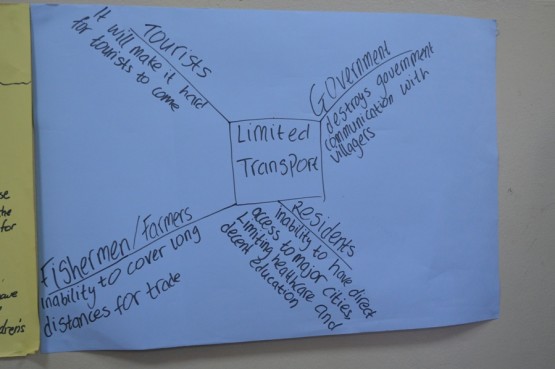 Tourists
It will make it hard
for tourists to come
Government
destroys government
communication with
villagers
Limited
Transport
Fishermen/Farmers
inability to cover long
distances for trade
Residents
Inability to have direct
access to major cities,
Limiting healthcare and
decent education
se
the
for